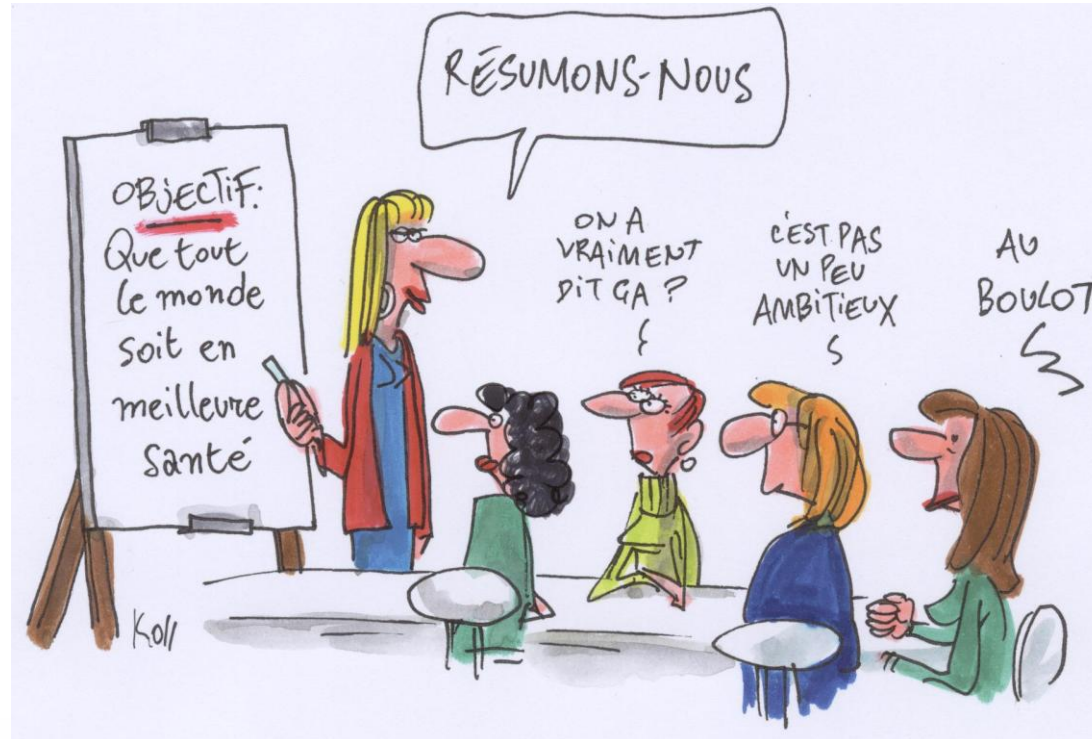 RÉSUMONS-NOUS
OBJECTIF:
Que tout
le monde
soit en
meilleure
santé
ON A
VRAIMENT
DIT ÇA ?
C'EST PAS
UN PEU
AMBITIEUX
AU
BOULOT
Kroll